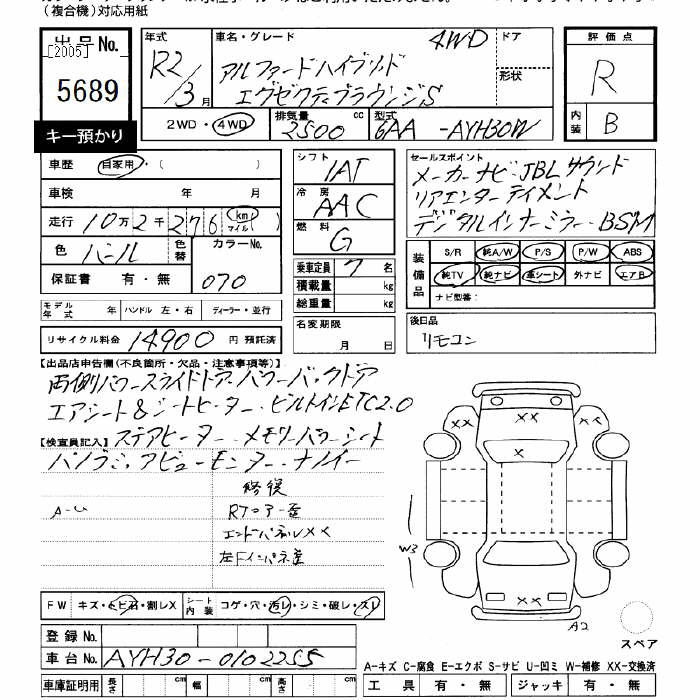 (複合機)対応用紙
出品No.
[2005]
5689
キー預かり
年式
R2/3月
車名・グレード
4WD
アルファードハイブリッド
エグゼクティブラウンジS
ドア
形状
評価点
R
内装
B
2WD・4WD
排気量
2500 cc
型式
6AA -AYH30W
車歴 自家用・( )
車検 年 月
走行 10万2千276 km マイル
色 パール
色替
カラーNo.
070
保証書 有・無
シフト
IAT
冷房
AAC
燃料
G
乗車定員 7 名
積載量 kg
総重量 kg
セールスポイント
メーカーナビ・JBLサウンド
リアエンターテイメント
デジタルインナーミラー・BSM
装備品
S/R 純A/W P/S P/W ABS
純TV 純ナビ 革シート 外ナビ エアB
ナビ型番:
モデル年式 年 ハンドル 左・右 ディーラー・並行
リサイクル料金 14900 円 預託済
名変期限
月 日
後日品
リモコン
【出品店申告欄(不良箇所・欠品・注意事項等)】
両側パワースライドドア・パワーバックドア
エアシート&シートヒーター・ビルトインETC2.0
ステアヒーター・メモリーパワーシート
【検査員記入】
パノラミックビューモニター・ナノイー
修復
RTコアー歪
エンドパネルXX
左Fインパネ歪
XX
XX
X
W3
XX
X
A2
スペア
FW キズ・トビ石・割レX
シート内装 コゲ・穴・汚レ・シミ・破レ・スレ
登録No.
車台No. AYH30-0102255
車庫証明用 長さ cm 幅 cm 高さ cm
A-キズ C-腐食 E-エクボ S-サビ U-凹ミ W-補修 XX-交換済
工具 有・無 ジャッキ 有・無